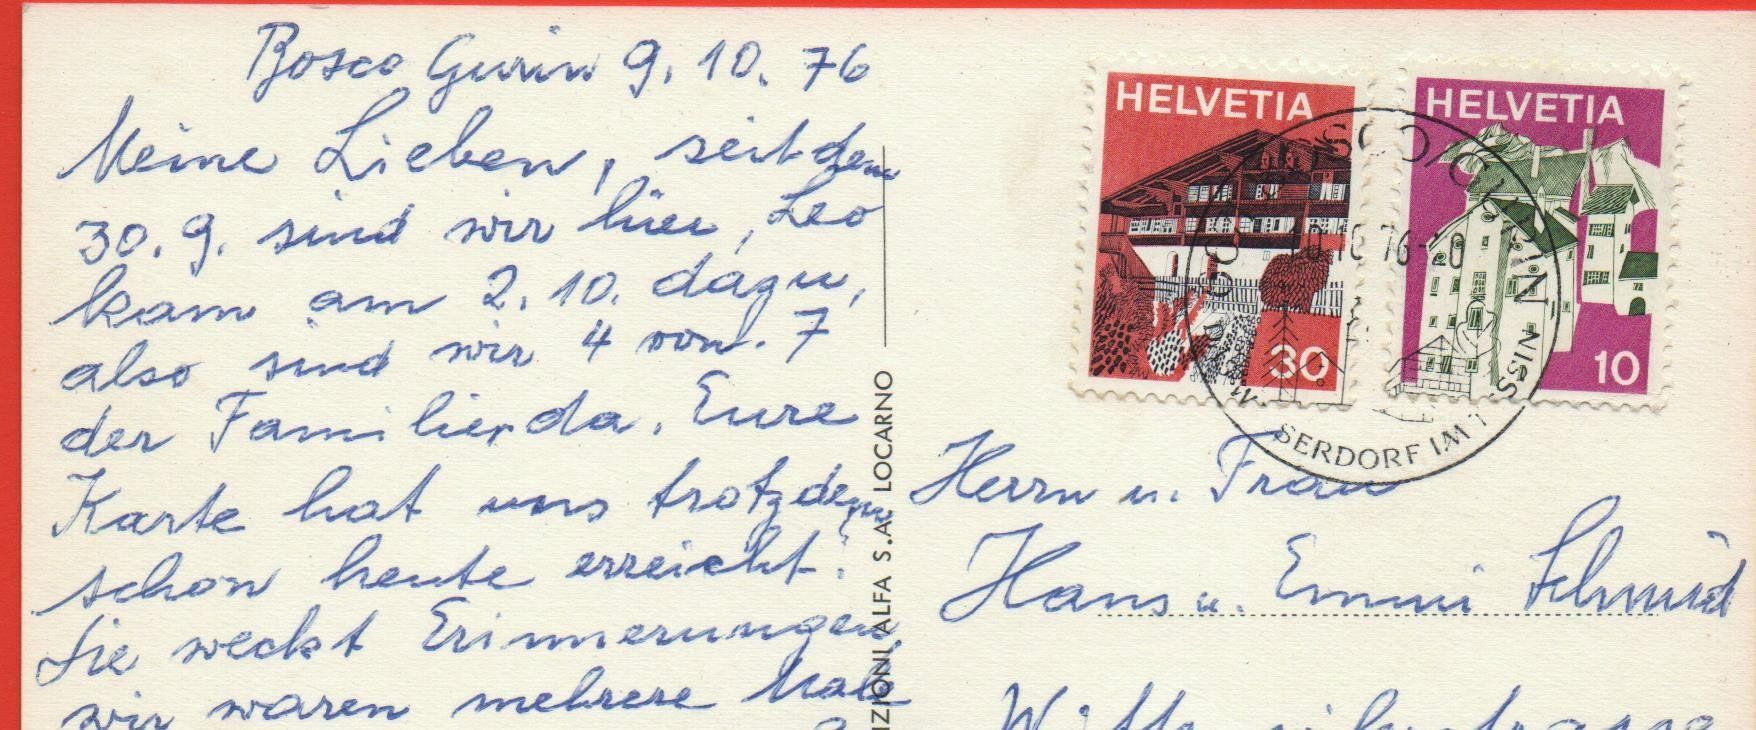 Bosco Gurin 9.10.76
Meine Lieben, seit dem
30.9. sind wir hier, Leo
kam am 2.10. dazu,
also sind wir 4 von 7
der Familie da. Eure
Karte hat uns trotzdem
schon heute erreicht!
Sie weckt Erinnerungen,
wir waren mehrere Male
IZIONI ALFA S.A. LOCARNO
HELVETIA
30
HELVETIA
10
BOSCO/GURIN
10.76-18
SERDORF IM
Herrn u. Frau
Hans u. Emmi Schmid